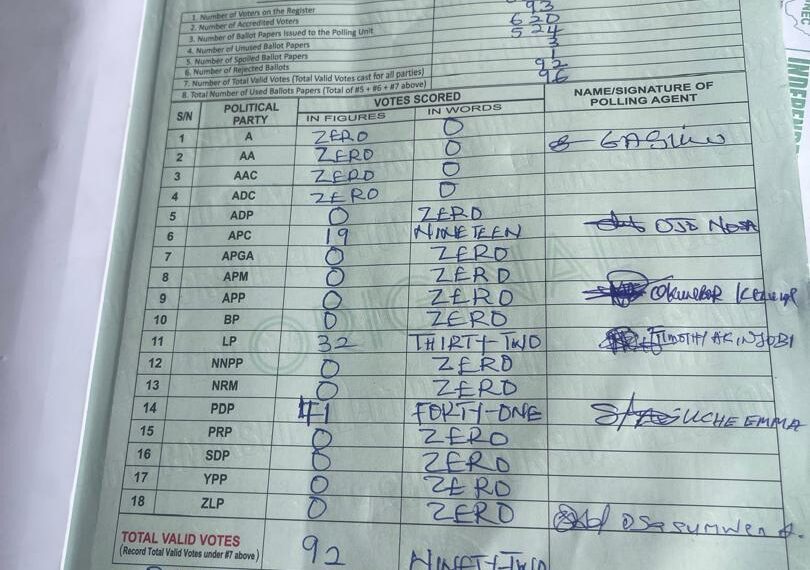 1. Number of Voters on the Register
2. Number of Accredited Voters 93
3. Number of Ballot Papers Issued to the Polling Unit 620
4. Number of Unused Ballot Papers 524
5. Number of Spoiled Ballot Papers 3
6. Number of Rejected Ballots 1
7. Number of Total Valid Votes (Total Valid Votes cast for all parties) 92
8. Total Number of Used Ballots Papers (Total of #5 + #6 + #7 above) 96
S/N POLITICAL PARTY VOTES SCORED NAME/SIGNATURE OF POLLING AGENT
IN FIGURES IN WORDS
1 A ZERO 0
2 AA ZERO 0
3 AAC ZERO 0
4 ADC ZERO 0
5 ADP 0 ZERO
6 APC 19 NINETEEN OJO NOSA
7 APGA 0 ZERO
8 APM 0 ZERO
9 APP 0 ZERO
10 BP 0 ZERO
11 LP 32 THIRTY-TWO TIMOTHY AKINJOBI
12 NNPP 0 ZERO
13 NRM 0 ZERO
14 PDP 41 FORTY-ONE UCHE EMMA
15 PRP 0 ZERO
16 SDP 0 ZERO
17 YPP 0 ZERO
18 ZLP 0 ZERO
TOTAL VALID VOTES
(Record Total Valid Votes under #7 above) 92 NINETY-TWO
ORIGINAL
INEC